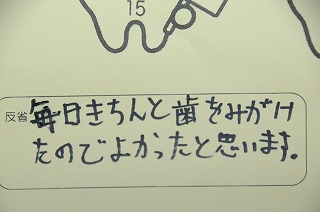 15
反省
毎日きちんと歯をみがけ
たのでよかったと思います。